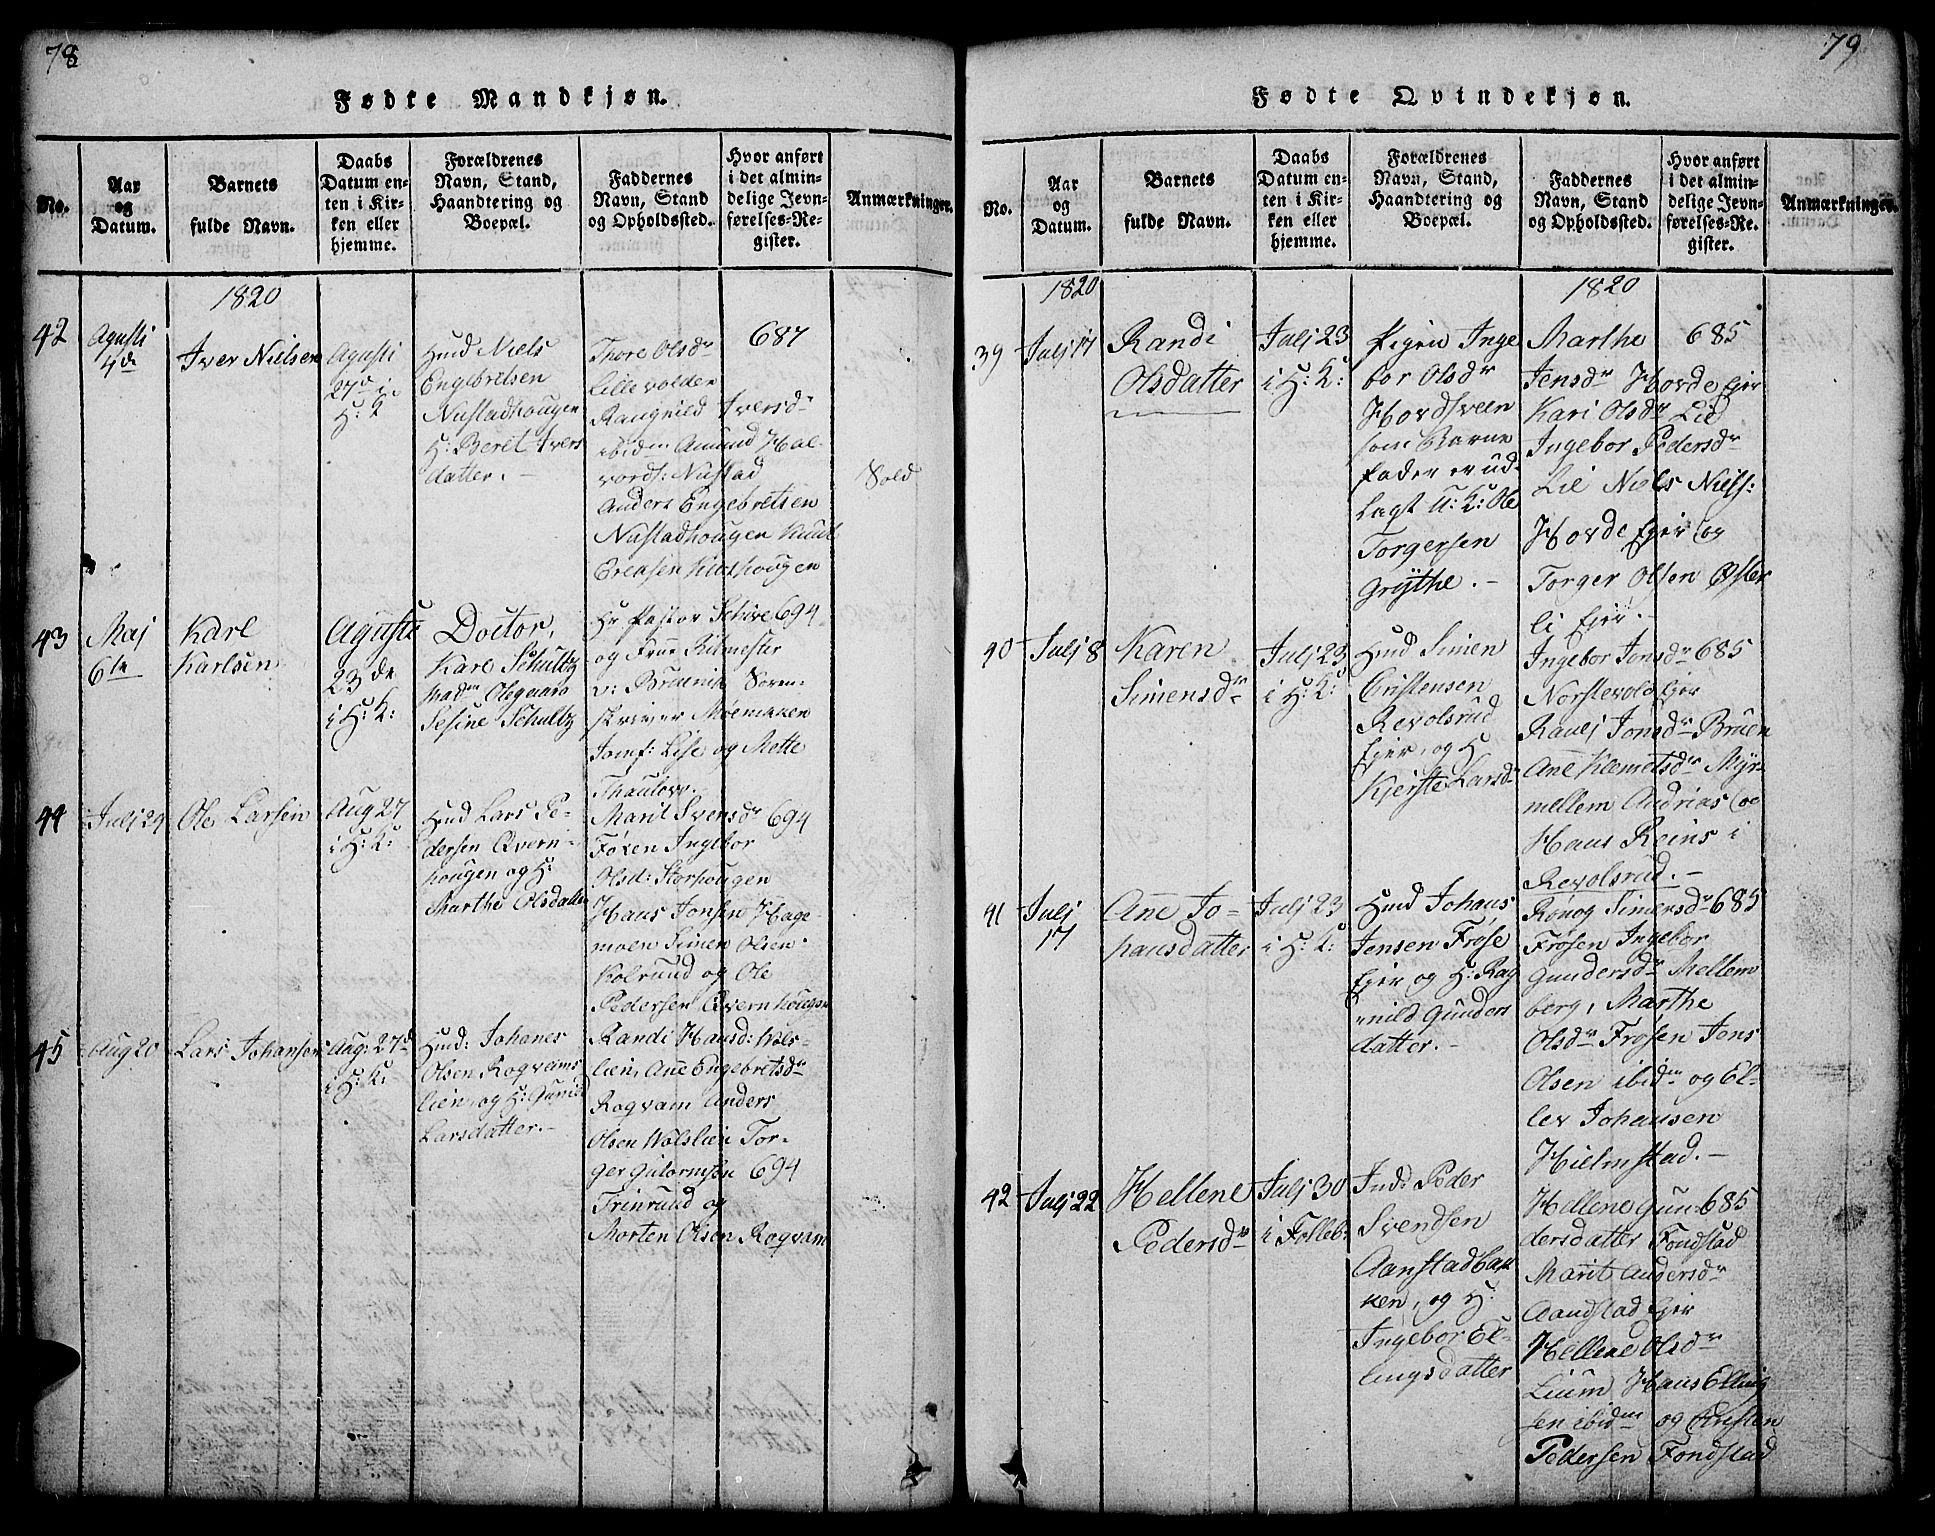 78
Fødte Mandkjøn.
No.
Aar
og
Datum.
Barnets
fulde Navn.
Daabs
Datum en-
ten i Kir-
ken eller
hjemme.
Forældrenes
Navn, Stand,
Haandtering og
Boepæl.
Faddernes
Navn, Stand
og Opholdssted.
Hvor anført
i det almin-
delige Jevn-
førelses-Re-
gister.
Anmærkninger.
1820
42
Agusti
4de
Iver Nielsen
Agusti
27d i
H: K
Huusmd Niels
Engebretsen
Nustadhougen
H: Beret Ivers
datter. –
Thore Olsdr
Lillevolden
Rangnild Iversdr
ibidm Amund Hal-
vords: Nustad
Anders Engebretsen
Nustadhougen Knud
Ericksen Klethougen
687
Sold
43
Maj
6te
Karl
Karlsen
Agusti
23de
i H: K:
Doctor,
Karl Schultz
Madm Olegaard
Sesine Schultz
Hr Pastor Schive 694
og Frue Ritmester
v: Bruenik Soren-
skriver Moemiken
Jomf: Lise og Mette
Thaulow.
44
Julj 29
Ole Larsen
Aug 27
i H: K:
Huusmd Lars Pe-
dersen Qvern-
hougen og H:
Marthe Olsdatter
Marit Svensdr 694
Foxen Ingebor
Olsd: Storhougen
Hans Jonsen Hage-
moen Simen Olsen
Kolruud og Ole
Pedersen Qvernhougen
45
Aug 20
Lars Johansen
Aug: 27d
i H: K:
Huusmd: Johanes
Olsen Rogvams
lien, og H: Gunild
Larsdatter. –
Randi Hansd: Wols-
lien, Ane Engebretsdr
Rogvam Anders
Olsen Wolslien Tor-
ger Gulormsen 694
Trinruud og
Morten Olsen Rogvam
79
Fødte Qvindekjøn.
No.
Aar
og
Datum.
Barnets
fulde Navn.
Daabs
Datum en-
ten i Kir-
ken eller
hjemme.
Forældrenes
Navn, Stand,
Haandtering og
Boepæl.
Faddernes
Navn, Stand
og Opholdssted.
Hvor anført
i det almin-
delige Jevn-
førelses-Re-
gister.
Anmærkninger.
1820
1820
39
Julj 17
Randi
Olsdatter
Julj 23
i H: K:
Pigen Inge
bor Olsdr
Hovdsveen
som Barne
fader er ud-
lagt U: K: Ole
Torgersen
Grythe. –
Marthe 685
Jensdr Hovde Ejer
Kari Olsdr Lie
Ingebor Pedersdr
Lie Niels Niels:
Hovde Ejer og
Torger Olsen Øster
li Ejer. –
40
Julj 8
Karen
Simensdr
Julj 23
i H: K:
Huusmd Simen
Cristensen
Revolsrud
Ejer, og H
Kjerste Larsdr
Ingebor Jonsdr 685
Norstevold Ejer
Rauelj Jonsdr Bruen
Ane Klemetsdr Myr-
mellem Andrias og
Hans Reins i
Revolsrud. –
41
Julj
17
Ane Jo-
hansdatter
Julj 23
i H: K:
Huusmd Johans
Jensen Frøse
Ejer og H: Rag
nild Gunders
datter. –
Rønog Simersdr 685
Frøsen Ingebor
Gundersdr Mellem
berg, Marthe
Olsdr Frøsen Jens
Olsen ibidm og El-
lev Johansen
Hielmstad. –
42
Julj 22
Hellene
Pedersdr
Julj 30
i Folleb:
Ind: Peder
Svendsen
Aanstadbak
ken, og H:
Ingebor El-
lingsdatter
Hellene Gun- 685
dersdatter Fondstad
Marit Andersdr
Aandstad Ejer
Hellene Olsdr
Lium Hans Elling
sen ibidm og Cristen
Pedersen Fondstad